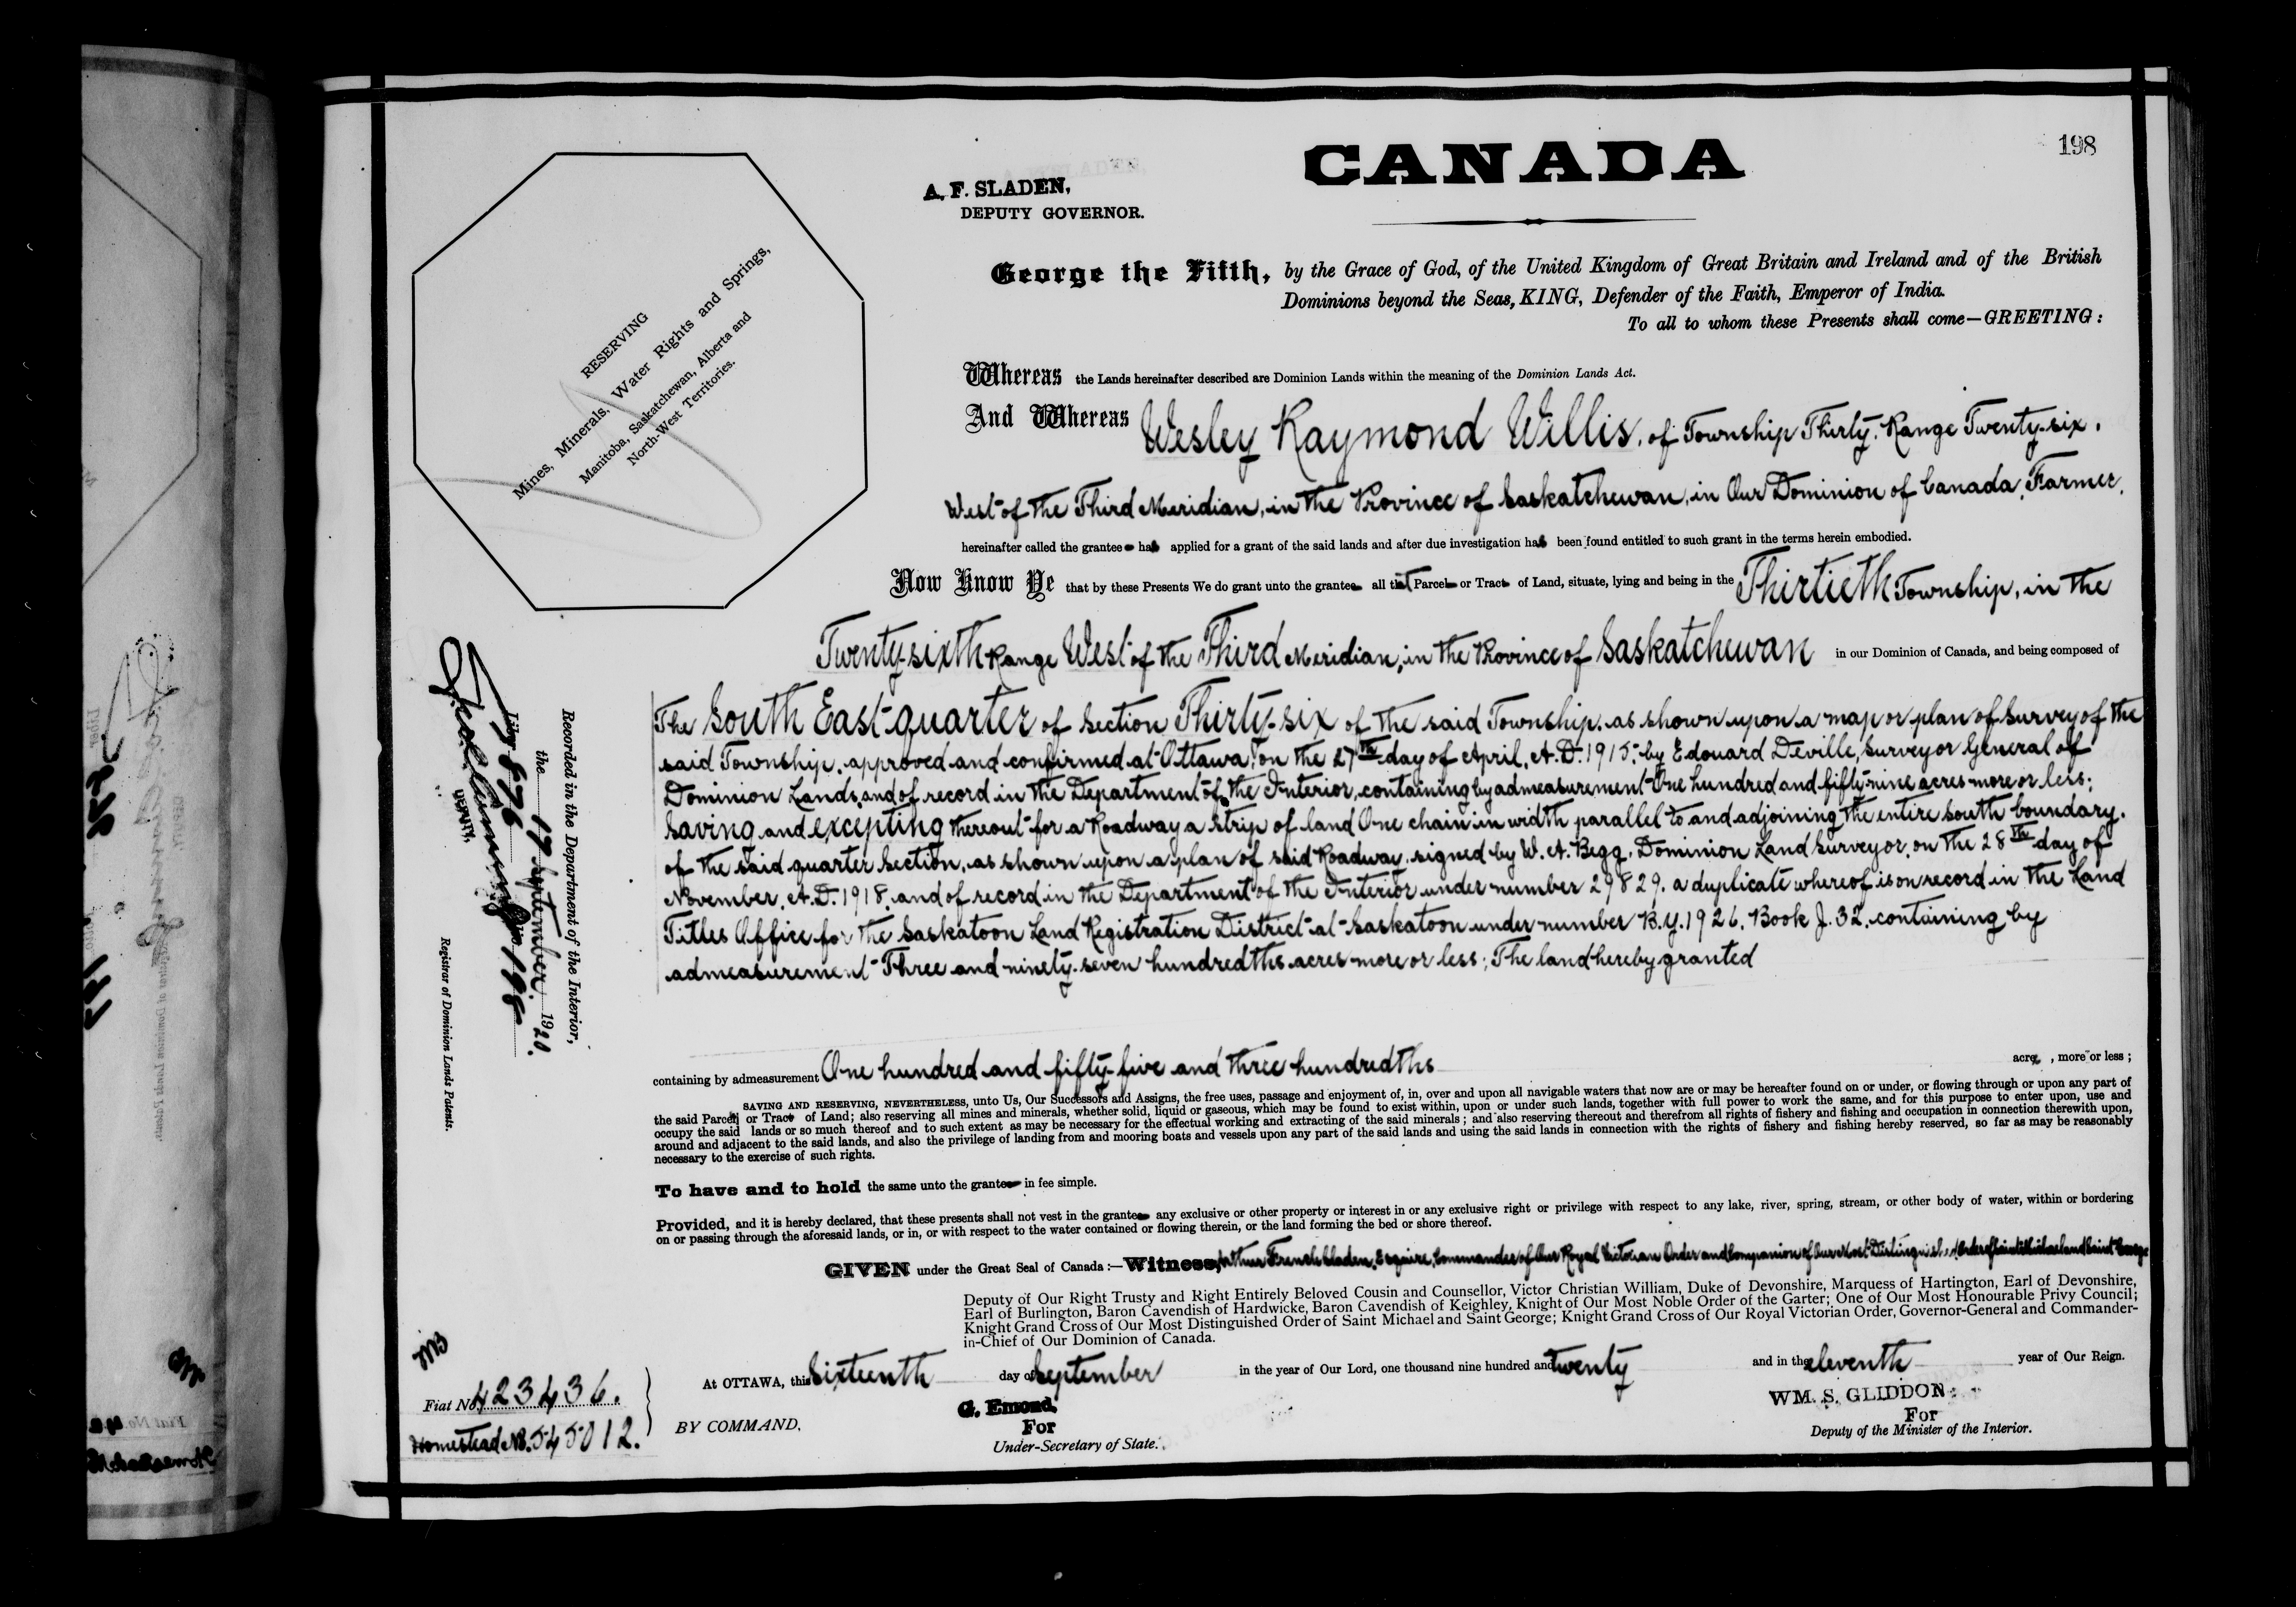 198
CANADA
A. F. SLADEN,
DEPUTY GOVERNOR.
George the Fifth, by the Grace of God, of the United Kingdom of Great Britain and Ireland and of the British
Dominions beyond the Seas, KING, Defender of the Faith, Emperor of India.
To all to whom these Presents shall come—GREETING:
RESERVING
Mines, Minerals, Water Rights and Springs,
Manitoba, Saskatchewan, Alberta and
North-West Territories.
Whereas the Lands hereinafter described are Dominion Lands within the meaning of the Dominion Lands Act.
And Whereas Wesley Raymond Willis, of Township Thirty, Range Twenty-six,
West of the Third Meridian, in the Province of Saskatchewan, in Our Dominion of Canada, Farmer,
hereinafter called the grantee has applied for a grant of the said lands and after due investigation has been found entitled to such grant in the terms herein embodied.
Now Know Ye that by these Presents We do grant unto the grantee all that Parcel or Tract of Land, situate, lying and being in the Thirtieth Township, in the
Twenty-sixth Range West of the Third Meridian, in the Province of Saskatchewan in our Dominion of Canada, and being composed of
The South East quarter of Section Thirty-six of the said Township, as shown upon a map or plan of Survey of the
said Township, approved and confirmed at Ottawa, on the 27th day of April, A.D. 1915, by Edouard Deville, Surveyor General of
Dominion Lands, and of record in the Department of the Interior, containing by admeasurement One hundred and fifty-nine acres more or less;
Saving and excepting thereout for a Roadway a strip of land One chain in width parallel to and adjoining the entire south boundary
of the said quarter Section, as shown upon a plan of said Roadway, signed by W. A. Begg, Dominion Land Surveyor, on the 28th day of
November, A.D. 1918, and of record in the Department of the Interior under number 29829, a duplicate whereof is on record in the Land
Titles Office for the Saskatoon Land Registration District at Saskatoon under number B.Y. 1926, Book J. 32, containing by
admeasurement Three and ninety-seven hundredths acres more or less; The land hereby granted
containing by admeasurement One hundred and fifty-five and three hundredths acres, more or less;
SAVING AND RESERVING, NEVERTHELESS, unto Us, Our Successors and Assigns, the free uses, passage and enjoyment of, in, over and upon all navigable waters that now are or may be hereafter found on or under, or flowing through or upon any part of
the said Parcel or Tract of Land; also reserving all mines and minerals, whether solid, liquid or gaseous, which may be found to exist within, upon or under such lands, together with full power to work the same, and for this purpose to enter upon, use and
occupy the said lands or so much thereof and to such extent as may be necessary for the effectual working and extracting of the said minerals; and also reserving thereout and therefrom all rights of fishery and fishing and occupation in connection therewith upon,
around and adjacent to the said lands, and also the privilege of landing from and mooring boats and vessels upon any part of the said lands and using the said lands in connection with the rights of fishery and fishing hereby reserved, so far as may be reasonably
necessary to the exercise of such rights.
To have and to hold the same unto the grantee in fee simple.
Provided, and it is hereby declared, that these presents shall not vest in the grantee any exclusive or other property or interest in or any exclusive right or privilege with respect to any lake, river, spring, stream, or other body of water, within or bordering
on or passing through the aforesaid lands, or in, or with respect to the water contained or flowing therein, or the land forming the bed or shore thereof.
GIVEN under the Great Seal of Canada:—Witness, Arthur French Sladen, Esquire, Commander of Our Royal Victorian Order and Companion of Our Most Distinguished Order of Saint Michael and Saint George
Deputy of Our Right Trusty and Right Entirely Beloved Cousin and Counsellor, Victor Christian William, Duke of Devonshire, Marquess of Hartington, Earl of Devonshire,
Earl of Burlington, Baron Cavendish of Hardwicke, Baron Cavendish of Keighley, Knight of Our Most Noble Order of the Garter; One of Our Most Honourable Privy Council;
Knight Grand Cross of Our Most Distinguished Order of Saint Michael and Saint George; Knight Grand Cross of Our Royal Victorian Order, Governor-General and Commander-
in-Chief of Our Dominion of Canada.
At OTTAWA, this Sixteenth day of September in the year of Our Lord, one thousand nine hundred and twenty and in the eleventh year of Our Reign.
BY COMMAND,
G. Emond,
For
Under-Secretary of State.
WM. S. GLIDDON
For
Deputy of the Minister of the Interior.
Fiat No. 423436.
Homestead No. 545012.
Recorded in the Department of the Interior,
the 17 September 1920.
Liber 876 Folio 198
DEPUTY,
Registrar of Dominion Lands Patents.